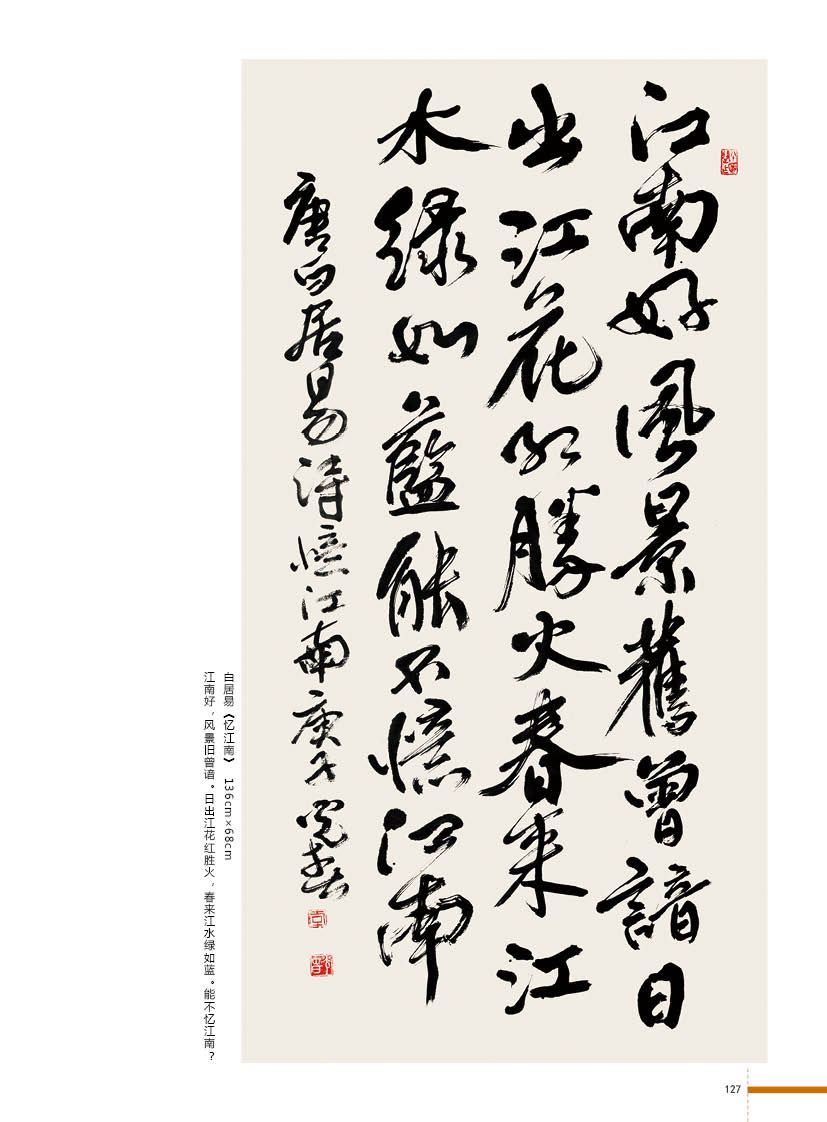 江南好風景舊曾諳日
出江花红勝火春来江
水绿如藍能不憶江南
唐白居易诗憶江南庚子
白居易《忆江南》 136cm×68cm
江南好，风景旧曾谙。日出江花红胜火，春来江水绿如蓝。能不忆江南？
127